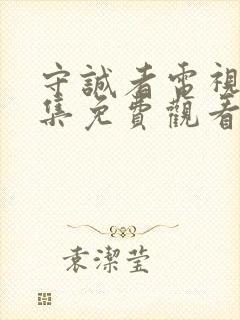 守誠者電視
集免費觀看
袁潔莹